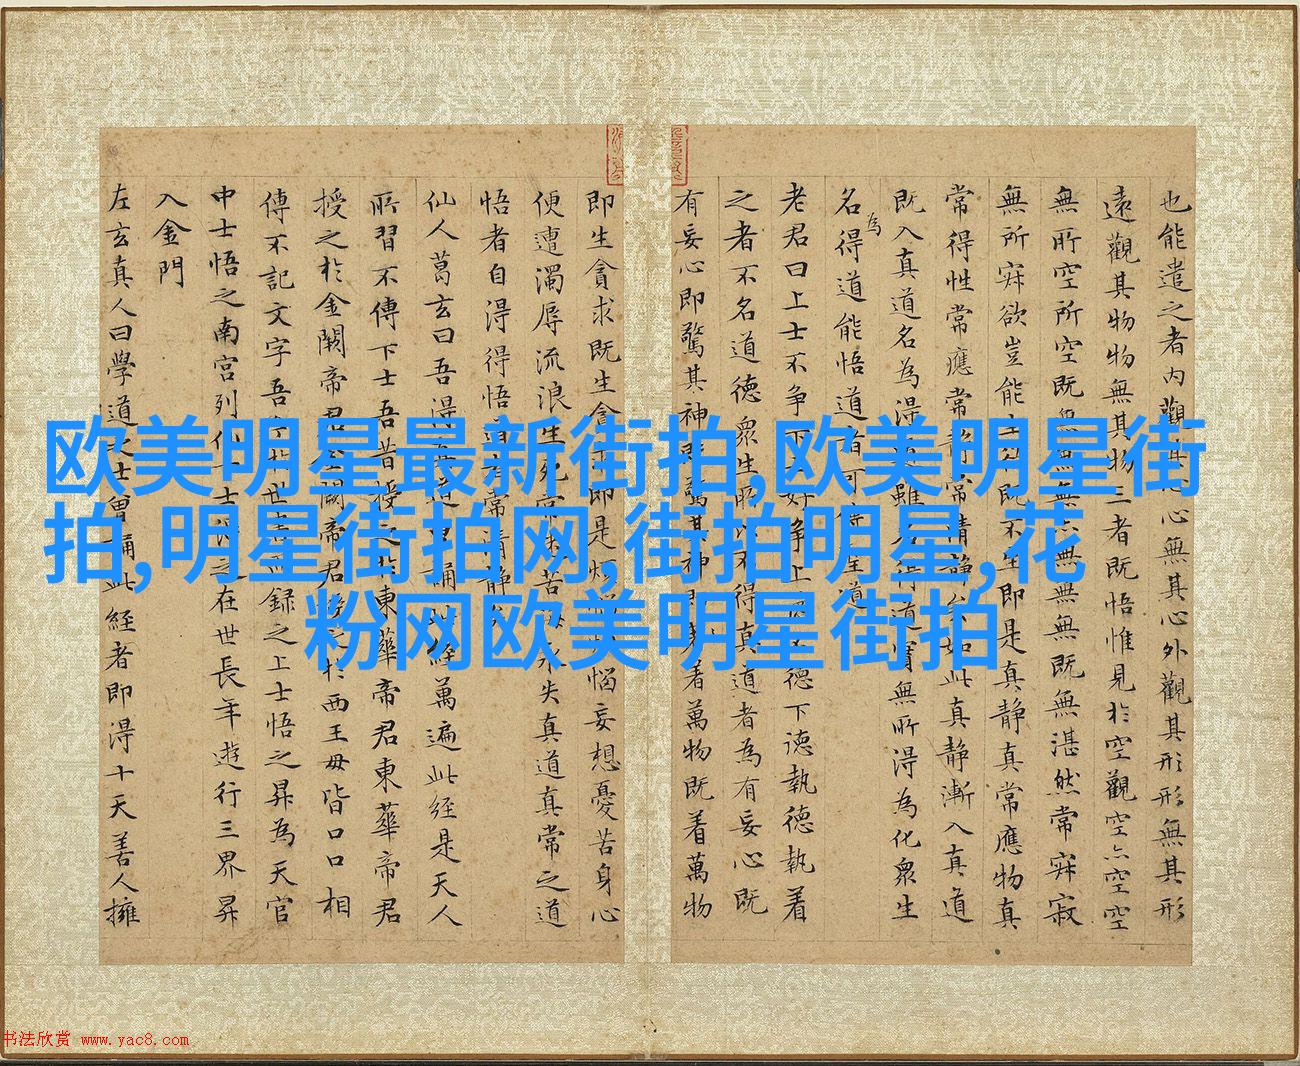 欧美明星最新街拍,欧美明星街
拍,明星街拍网,街拍明星,花
粉网欧美明星街拍
也能遣之者內觀其心心無其心外觀其形形無其形
遠觀其物物無其物三者既悟惟見於空觀空亦空空
無所空所空既無無無亦無無無既無湛然常寂寂
無所寂欲豈能生欲既不生即是真静真常應物真
常得性常應常静常清静矣如此真静漸入真道
既入真道名為得道雖名得道實無所得為化衆生
名為得道能悟道者可傳聖道
老君曰上士不争下士好争上德不德下德執德執着
之者不名道德衆生所以不得真道者為有妄心既
有妄心即驚其神既驚其神即着萬物既着萬物
即生貪求既生貪求即是煩惱煩惱妄想憂苦身心
便遭濁辱流浪生死常沉苦海永失真道真常之道
悟者自得得悟道者常清静矣
仙人葛玄曰吾得真道曾誦此經萬遍此經是天人
所習不傳下士吾昔授之於東華帝君東華帝君
授之於金闕帝君金闕帝君授之於西王母皆口口相
傳不記文字吾今於世書而録之上士悟之昇為天官
中士悟之南宫列仙下士得之在世長年遊行三界昇
入金門
左玄真人曰學道之士曾誦此經者即得十天善人擁
书法欣赏 www.yac8.com